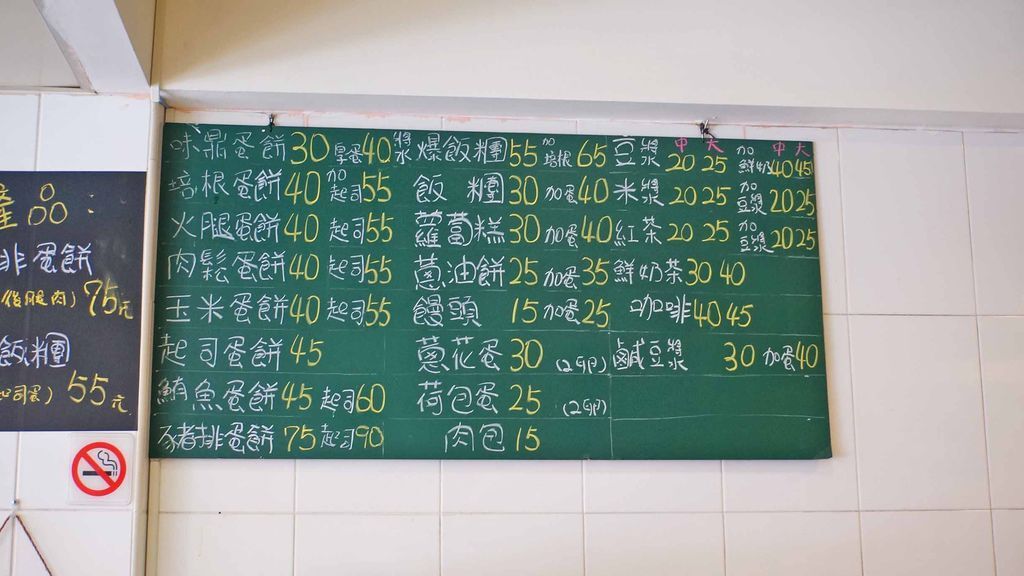 產品:
排蛋餅
後腿肉) 75元
飯糰
起司蛋) 55元
味鼎蛋餅 30 單蛋 40
培根蛋餅 40 加起司 55
火腿蛋餅 40 起司 55
肉鬆蛋餅 40 起司 55
玉米蛋餅 40 起司 55
起司蛋餅 45
鮪魚蛋餅 45 起司 60
豬排蛋餅 75 起司 90
爆飯糰 55 加培根 65
飯糰 30 加蛋 40
蘿蔔糕 30 加蛋 40
蔥油餅 25 加蛋 35
饅頭 15 加蛋 25
蔥花蛋 30 (2卵)
荷包蛋 25 (2卵)
肉包 15
中 大 中 大
豆漿 20 25 加鮮奶 40 45
米漿 20 25 加豆漿 20 25
紅茶 20 25 加豆漿 20 25
鮮奶茶 30 40
咖啡 40 45
鹹豆漿 30 加蛋 40